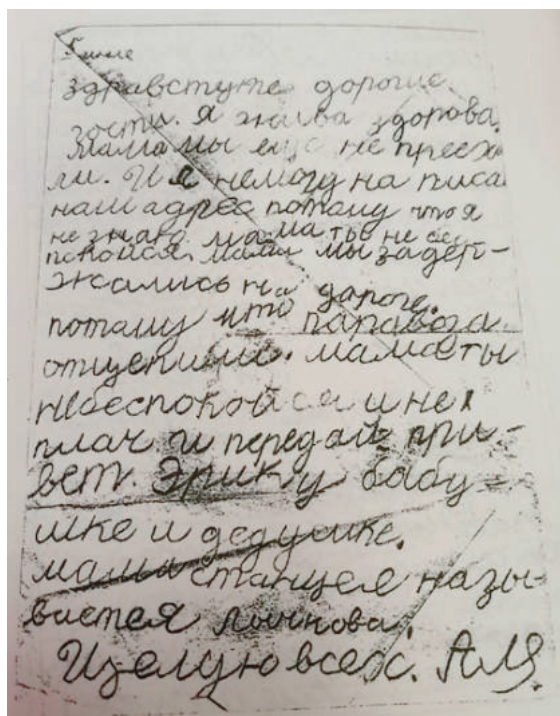 5 июле
здравстуте дорогие
гости. Я жива здорова.
мама мы ещё не преех
ли. И я немогу на писа
наш адрес потаму что я
не знаю мама ты не бес
покойся. мама мы задер-
жались на дароге.
потаму что паравоза
отцепили. мама ты
небеспокойся и не
плач и передай при-
вет. Эрику бабу-
шке и дедушке.
мама станцея назы-
вается
Ицелую всех. Аля